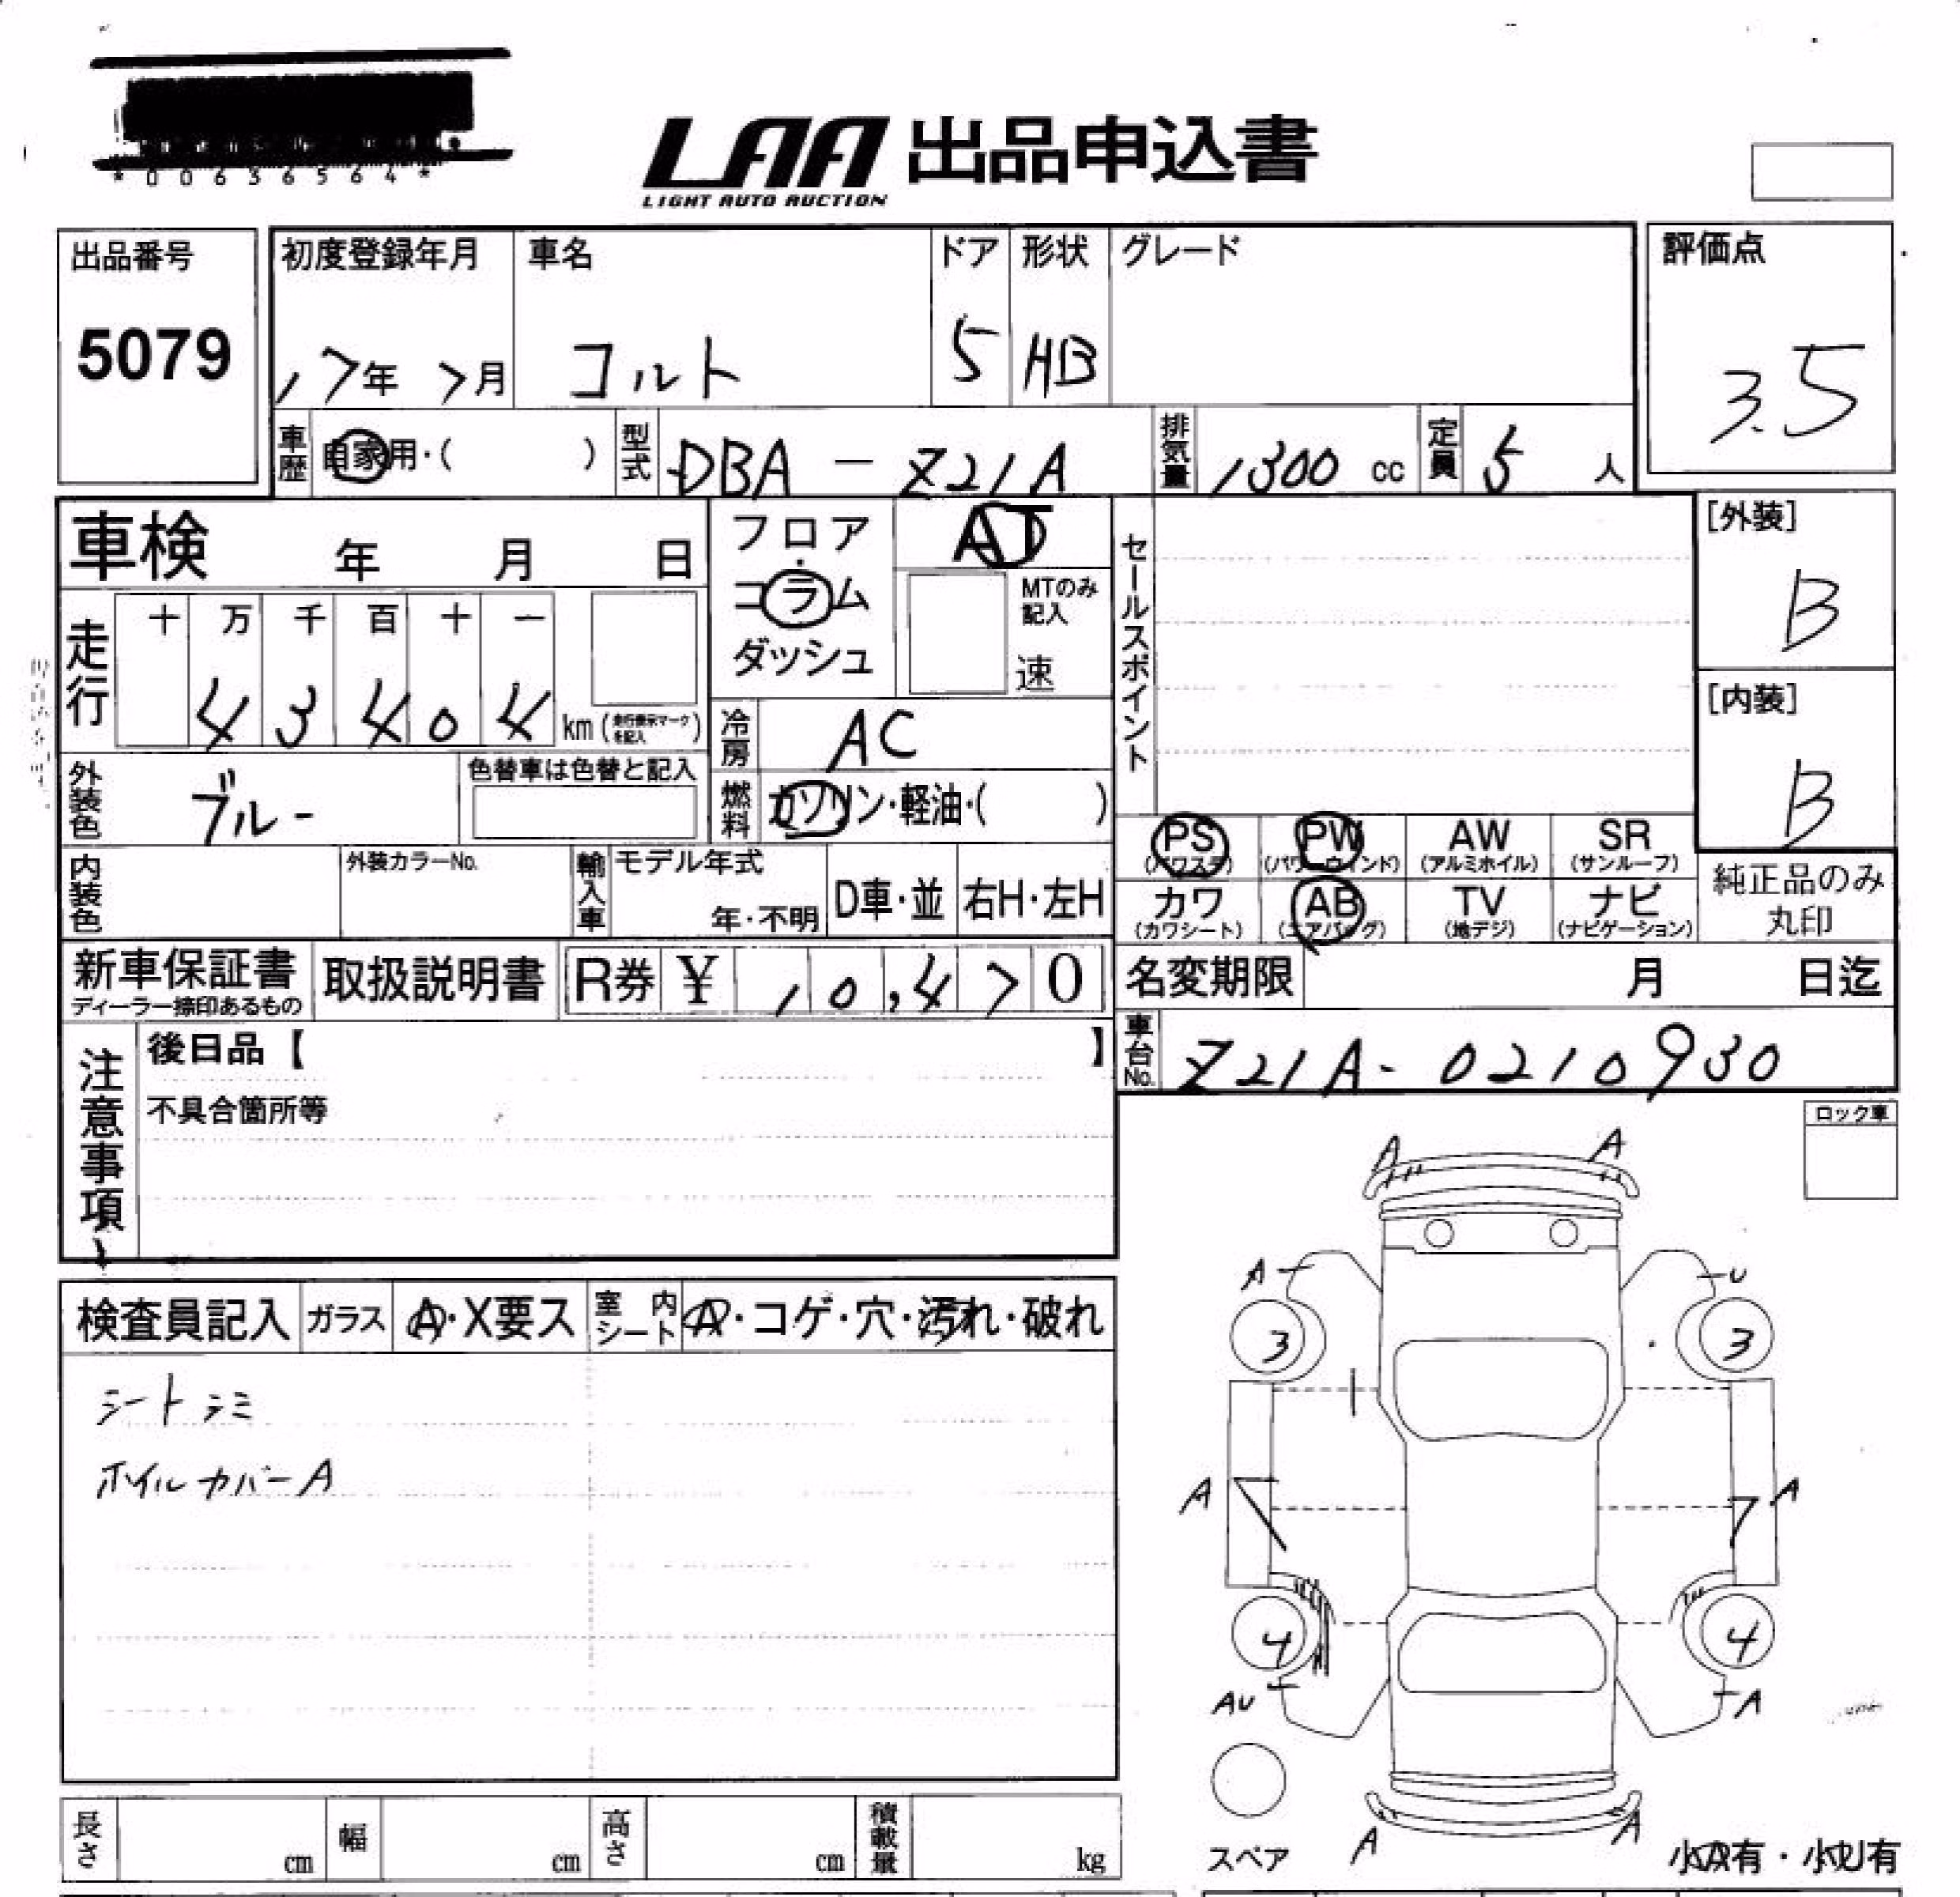 *00636564*
LAA 出品申込書
LIGHT AUTO AUCTION
出品番号 初度登録年月 車名 ドア 形状 グレード 評価点
5079 17年 7月 コルト 5 HB 3.5
車歴 自家用・( ) 型式 DBA - Z21A 排気量 1300 cc 定員 5 人
車検 年 月 日 フロア・コラム ダッシュ AT セールスポイント [外装]
MTのみ記入 速 B
走行 十 万 千 百 十 一
4 3 4 0 4 km (走行表示マークを記入) [内装]
冷房 AC B
外装色 ブルー 色替車は色替と記入 燃料 ガソリン・軽油・( )
PS (パワステ) PW (パワーウィンドウ) AW (アルミホイル) SR (サンルーフ)
内装色 外装カラーNo. 輸入車 モデル年式 年・不明 D車・並 右H・左H
カワ (カワシート) AB (エアバッグ) TV (地デジ) ナビ (ナビゲーション) 純正品のみ丸印
新車保証書 ディーラー捺印あるもの 取扱説明書 R券 ¥ 10,470 名変期限 月 日迄
注意事項 後日品【 】 車台No. Z21A-0210930
不具合箇所等
ロック車
A A
A U
検査員記入 ガラス A・X要ス 室内シート A・コゲ・穴・汚れ・破れ
3 3
シートシミ
ホイルカバーA
A A
4 4
AU A
長さ cm 幅 cm 高さ cm 積載量 kg
スペア A A 小A有・小U有